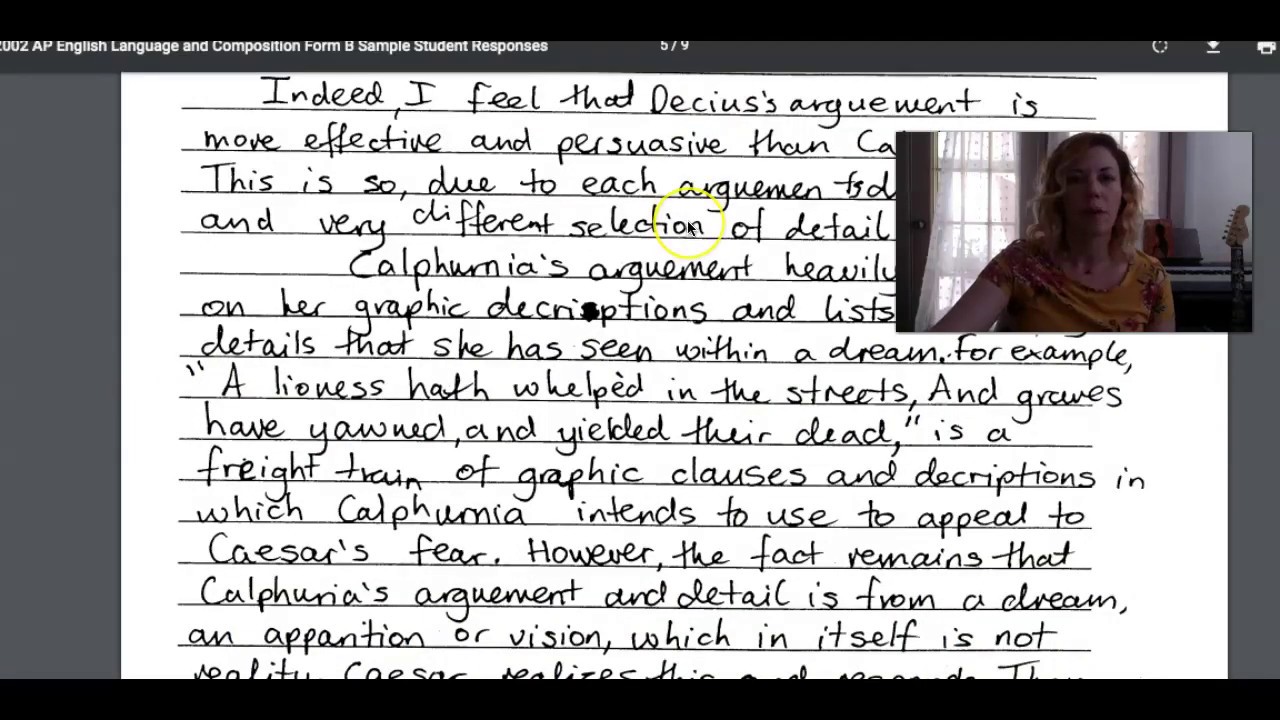 2002 AP English Language and Composition Form B Sample Student Responses
5 / 9
Indeed, I feel that Decius's arguement is
more effective and persuasive than Ca
This is so, due to each arguemen tsd
and very different selection of detail
Calphurnia's arguement heavily
on her graphic decriptions and lists
details that she has seen within a dream. For example,
"A lioness hath whelped in the streets, And graves
have yawned, and yielded their dead," is a
freight train of graphic clauses and decriptions in
which Calphurnia intends to use to appeal to
Caesar's fear. However, the fact remains that
Calphuria's arguement and detail is from a dream,
an appantion or vision, which in itself is not
reality. Caesar realizes this and responds